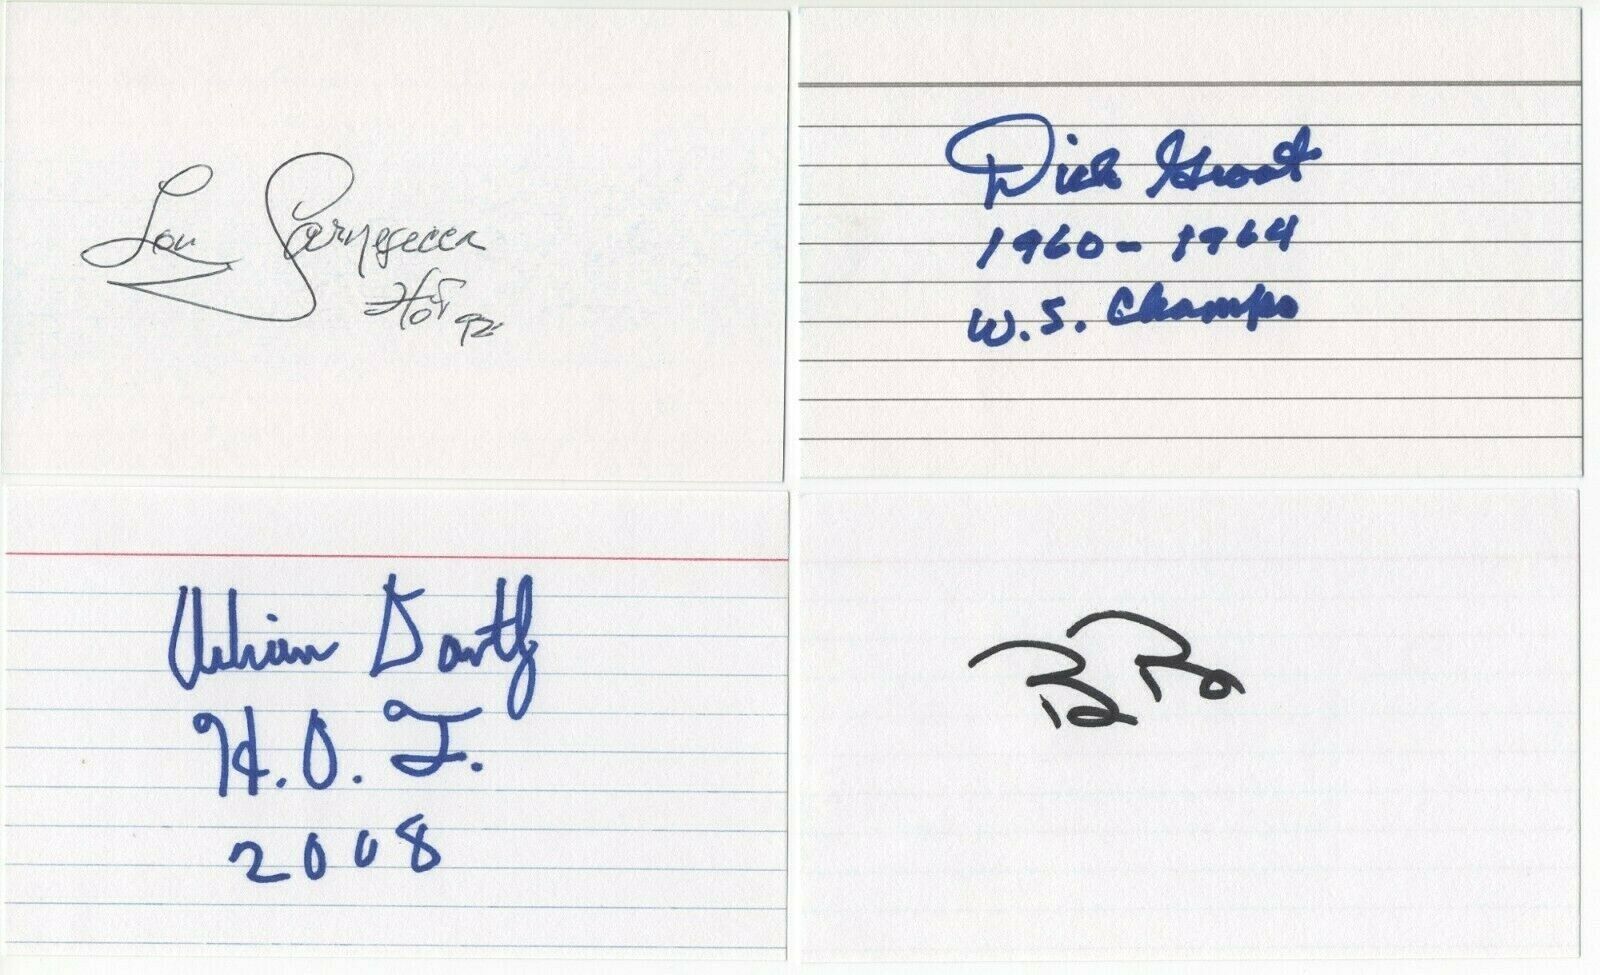 Lou Carnesecca
HOF 92
Dick Groat
1960 - 1964
W. S. Champs
Adrian Dantley
H. O. F.
2008